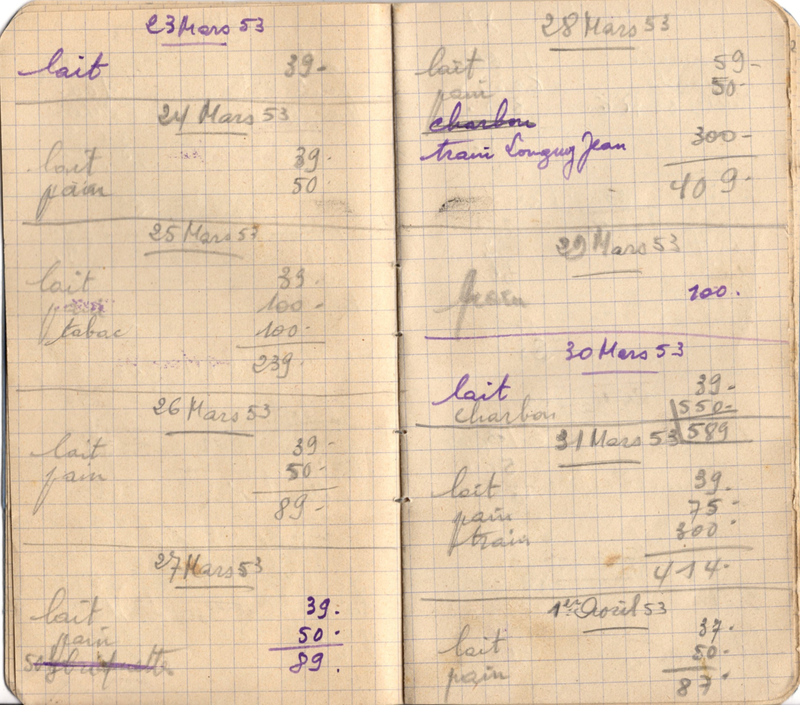 23 Mars 53
lait 39-
24 Mars 53
lait 39.
pain 50
25 Mars 53
lait 39.
100-
tabac 100-
239.
26 Mars 53
lait 39-
pain 50-
89-
27 Mars 53
lait 39.
pain 50.
89.
28 Mars 53
lait 59-
pain 50-
charbon
train Longuy Jean 300-
409.
29 Mars 53
pain 100.
30 Mars 53
lait 39-
charbon 550-
589
31 Mars 53
lait 39.
pain 75-
train 300-
414.
1er Avril 53
lait 37.
pain 50.
87.